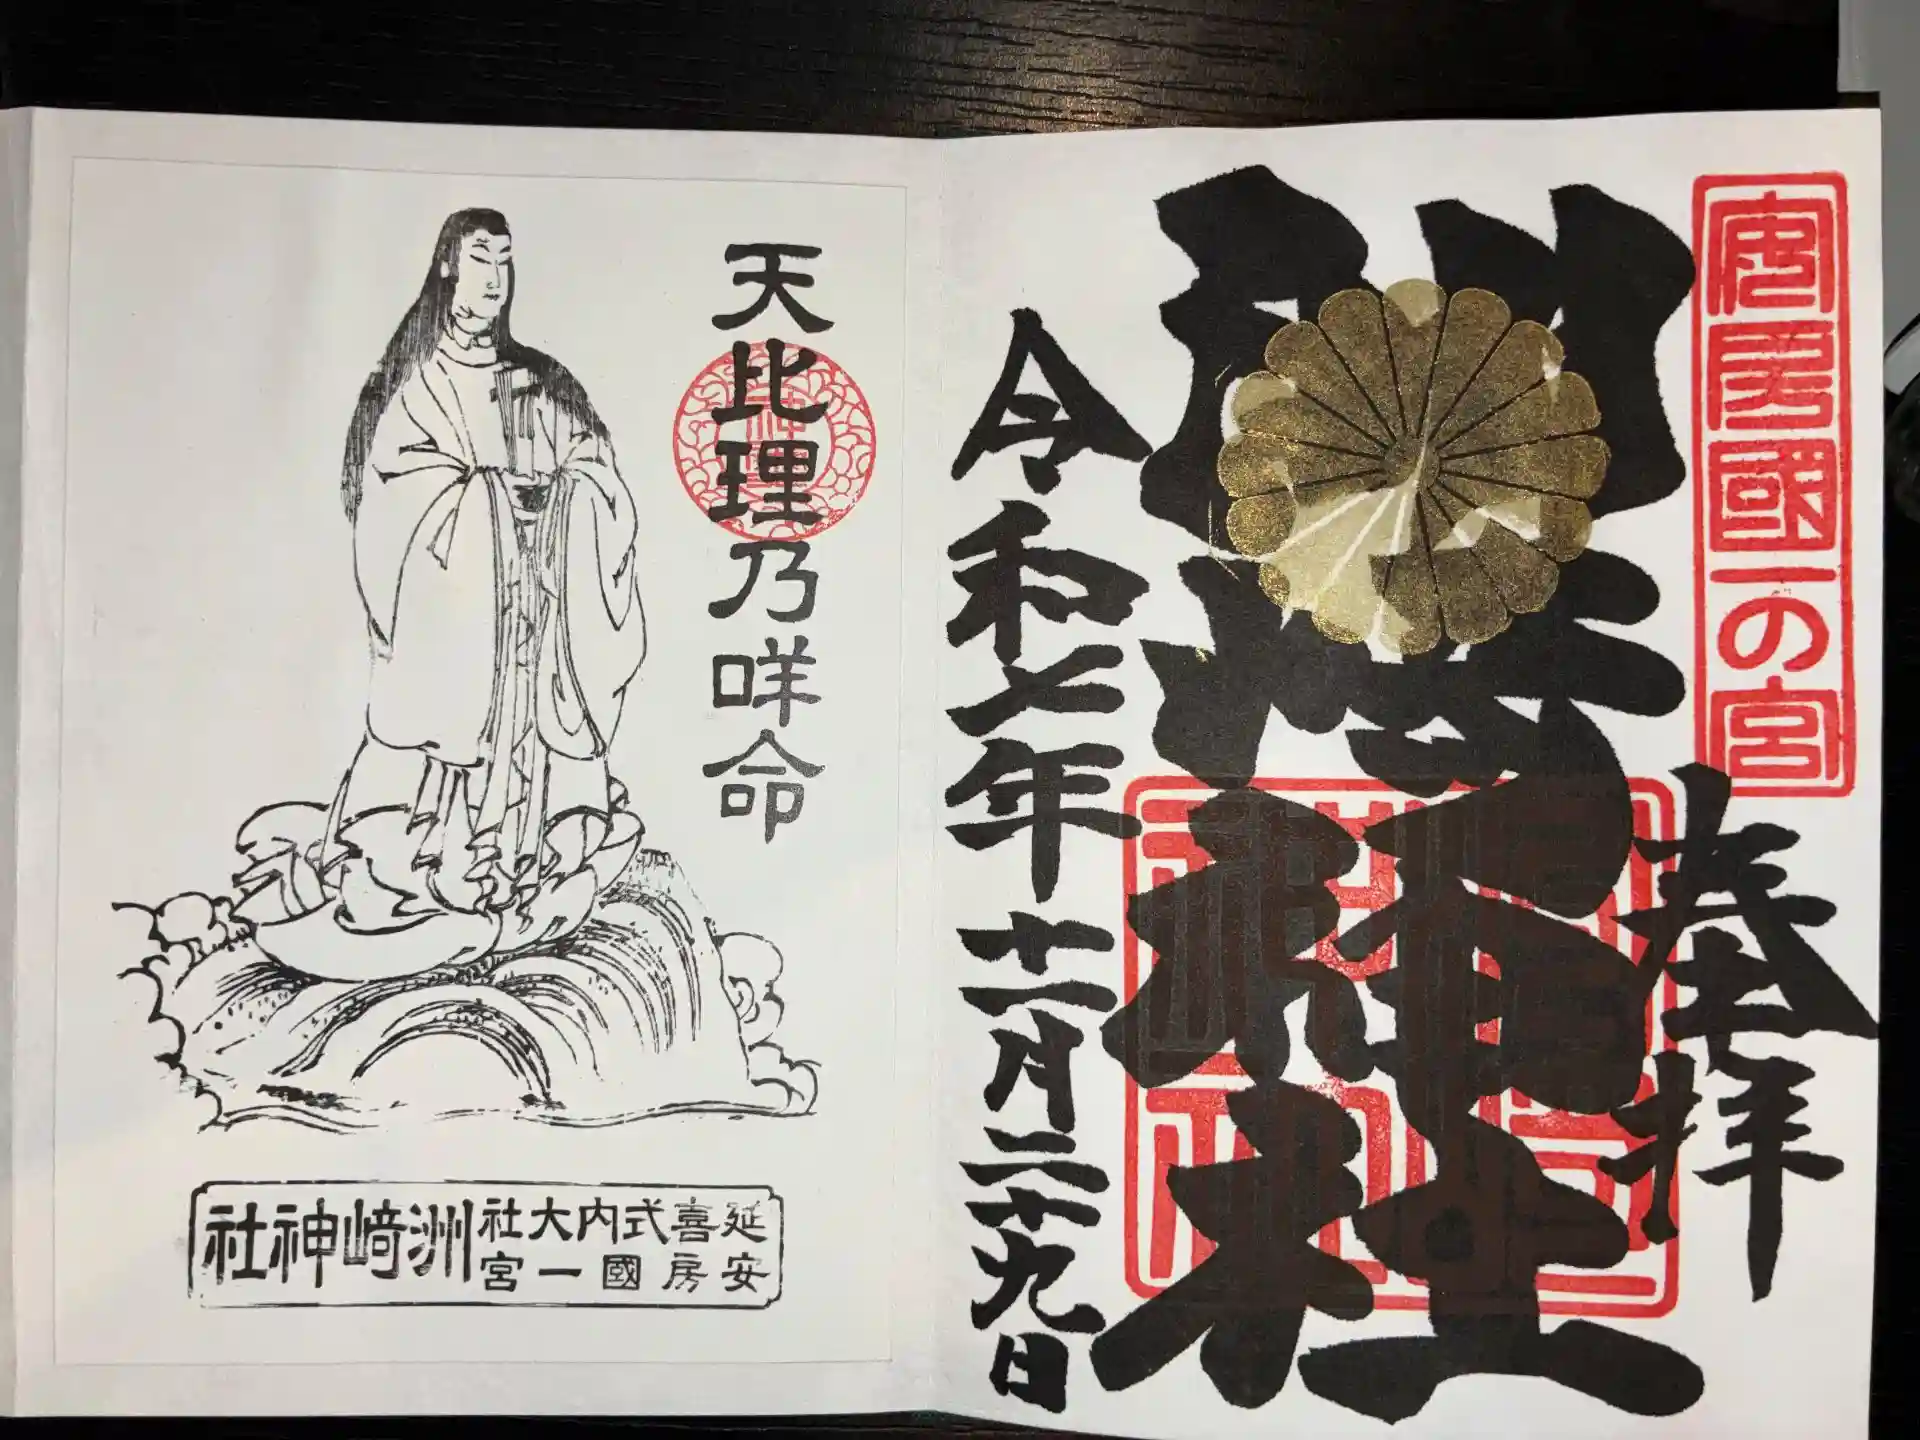 安房國一の宮
奉拝
洲崎神社
令和七年十一月二十九日
天比理乃咩命
延喜式内大社
安房國一宮
洲﨑神社